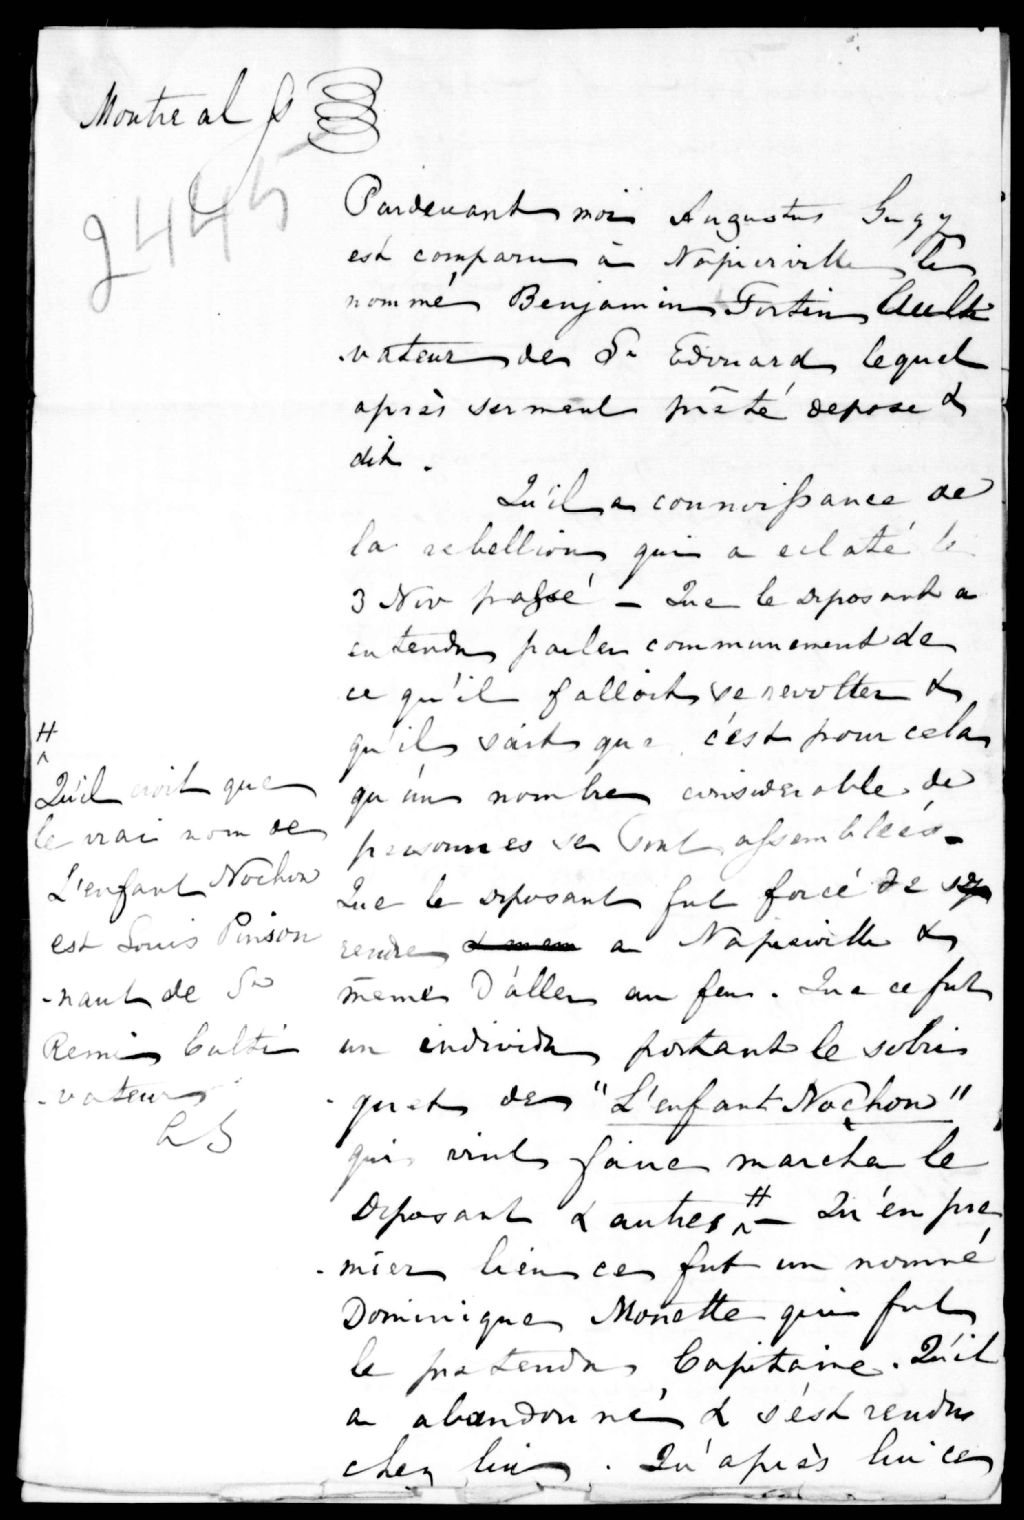 Montreal
2445
Pardevant moi Augustus Gugy
est comparu à Napierville le
nommé Benjamin Fortin Culti
-vateur de St Edouard lequel
après serment prêté depose &
dit.
Qu'il a connoissance de
la rebellion qui a eclaté le
3 Nov passé – Que le deposant a
entendu parler communement de
ce qu'il falloit se revolter &
qu'il sait que c'est pour cela
qu'un nombre considerable de
personnes se sont assemblées –
Que le deposant fut forcé de se
rendre & mem a Napierville &
même d'aller au feu. Que ce fut
un individu portant le sobri
-quet de "L'enfant Nochon"
qui vint faire marcher le
deposant & autres # – Qu'en pre
-mier lieu ce fut un nommé
Dominique Monette qui fut
le pretendu Capitaine. Qu'il
a abandonné & s'est rendu
chez lui. Qu'après lui ce
#
Qu'il croit que
le vrai nom de
L'enfant Nochon
est Louis Pinson
-naut de St
Remi Culti
-vateur